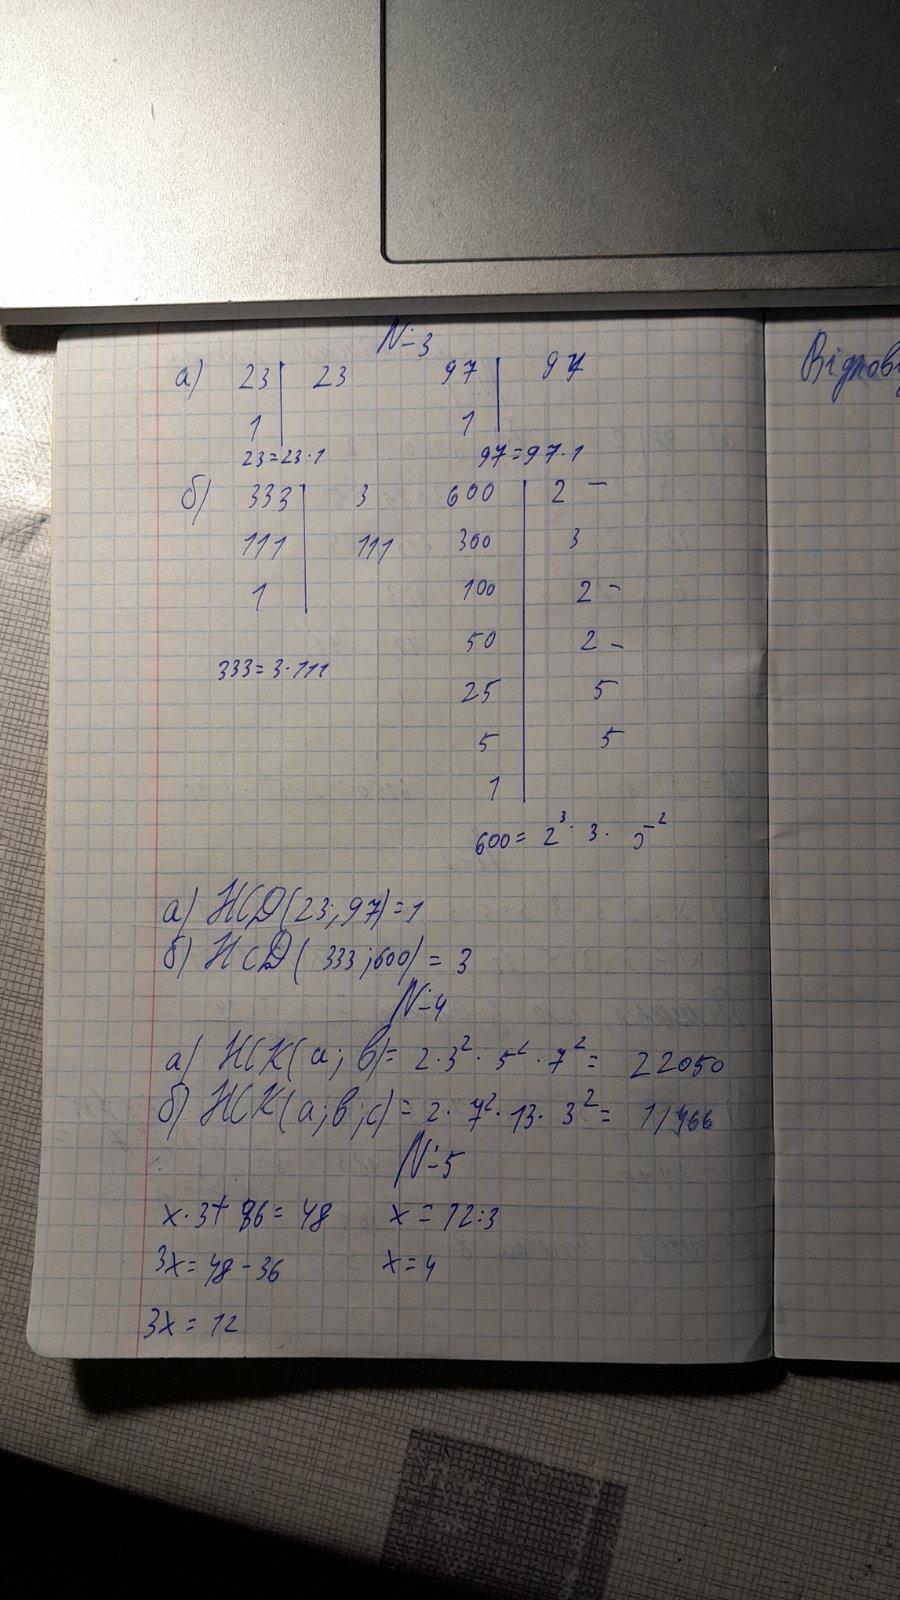 №3
а) 23 | 23 97 | 97
1 | 1 |
23=23·1 97=97·1
б) 333 | 3 600 | 2 –
111 | 111 300 | 3
1 | 100 | 2 –
50 | 2 –
333=3·111 25 | 5
5 | 5
1 |
600= 2³· 3· 5²
а) НСД(23;97)=1
б) НСД( 333;600) = 3
№4
а) НСК(а; в)= 2·3²·5²·7²= 22050
б) НСК(а;в;с)= 2·7²·13·3²= 11466
№5
х·3+36=48 х=12:3
3х=48-36 х=4
3х=12
Відпові